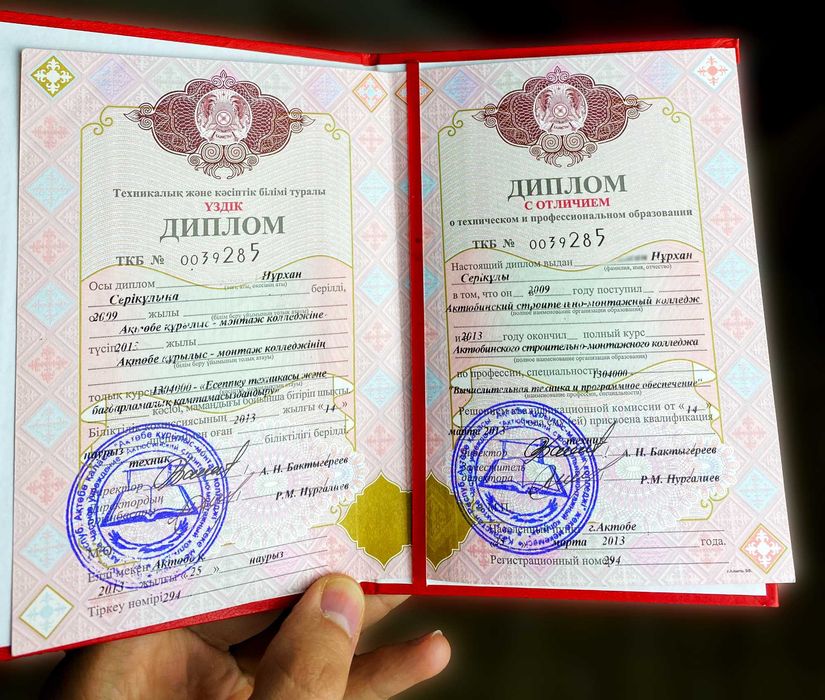 Техникалық және кәсіптік білімі туралы
ҮЗДІК
ДИПЛОМ
ТКБ № 0039285
Осы диплом Нұрхан
(тегі, аты, әкесінің аты)
берілді,
2009 жылы
Ақтөбе құрылыс - монтаж колледжіне
түсіп 2013 жылы
Ақтөбе құрылыс - монтаж колледжінің
толық курсы 1304000 - «Есептеу техникасы және
бағдарламалық қамтамасыздандыру»
кәсіп, мамандығы бойынша бітіріп шықты.
2013 жылғы «14»
наурыз
біліктілігі берілді.
техник
Директор А. Н. Бактыгереев
Директордың
Р.М. Нургалиев
Елді мекен Ақтөбе қ.
2013 жылғы «25» наурыз
Тіркеу нөмірі 294
ДИПЛОМ
С ОТЛИЧИЕМ
о техническом и профессиональном образовании
ТКБ № 0039285
Настоящий диплом выдан Нурхан
(фамилия, имя, отчество)
Серікулы
в том, что он 2009 году поступил
Актюбинский строительно-монтажный колледж
(полное наименование организации образования)
и 2013 году окончил полный курс
Актюбинского строительно-монтажного колледжа
(полное наименование организации образования)
по профессии, специальности 1304000 -
"Вычислительная техника и программное обеспечение"
(наименование профессии, специальности)
Решением квалификационной комиссии от «14»
марта 2013
присвоена квалификация
техник
А. Н. Бактыгереев
Заместитель
директора Р.М. Нургалиев
Населенный пункт г.Актобе
марта 2013 года.
Регистрационный номер 294